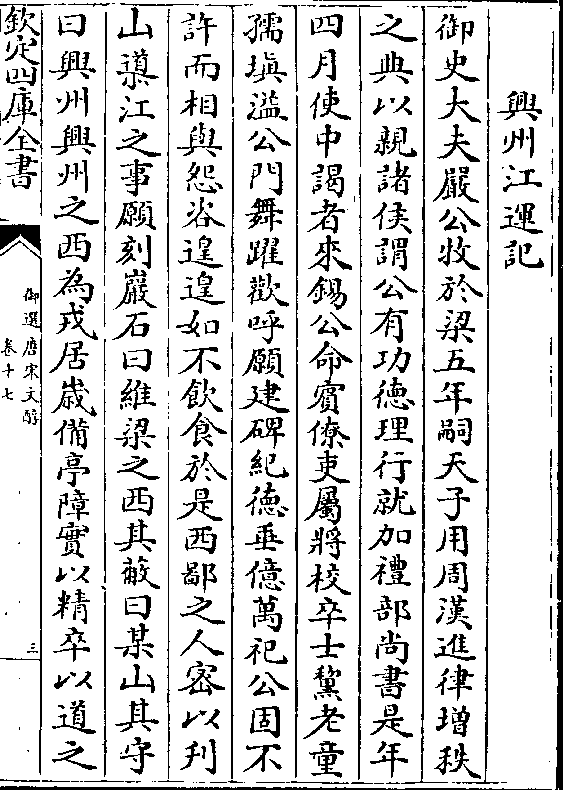 興州江運記
御史大夫嚴公牧於梁五年嗣天子用周漢進律增秩
之典以親諸侯謂公有功德理行就加禮部尚書是年
四月使中謁者來錫公命賓僚吏屬將校卒士黧老童
孺填溢公門舞躍歡呼願建碑紀德垂億萬祀公固不
許而相與怨咨遑遑如不飲食於是西鄙之人密以刋
山導江之事願刻巖石曰維梁之西其蔽曰某山其守
曰興州興州之西為戎居歲備亭障實以精卒以道之
欽定四庫全書
御選唐宋文醇
卷十七
三